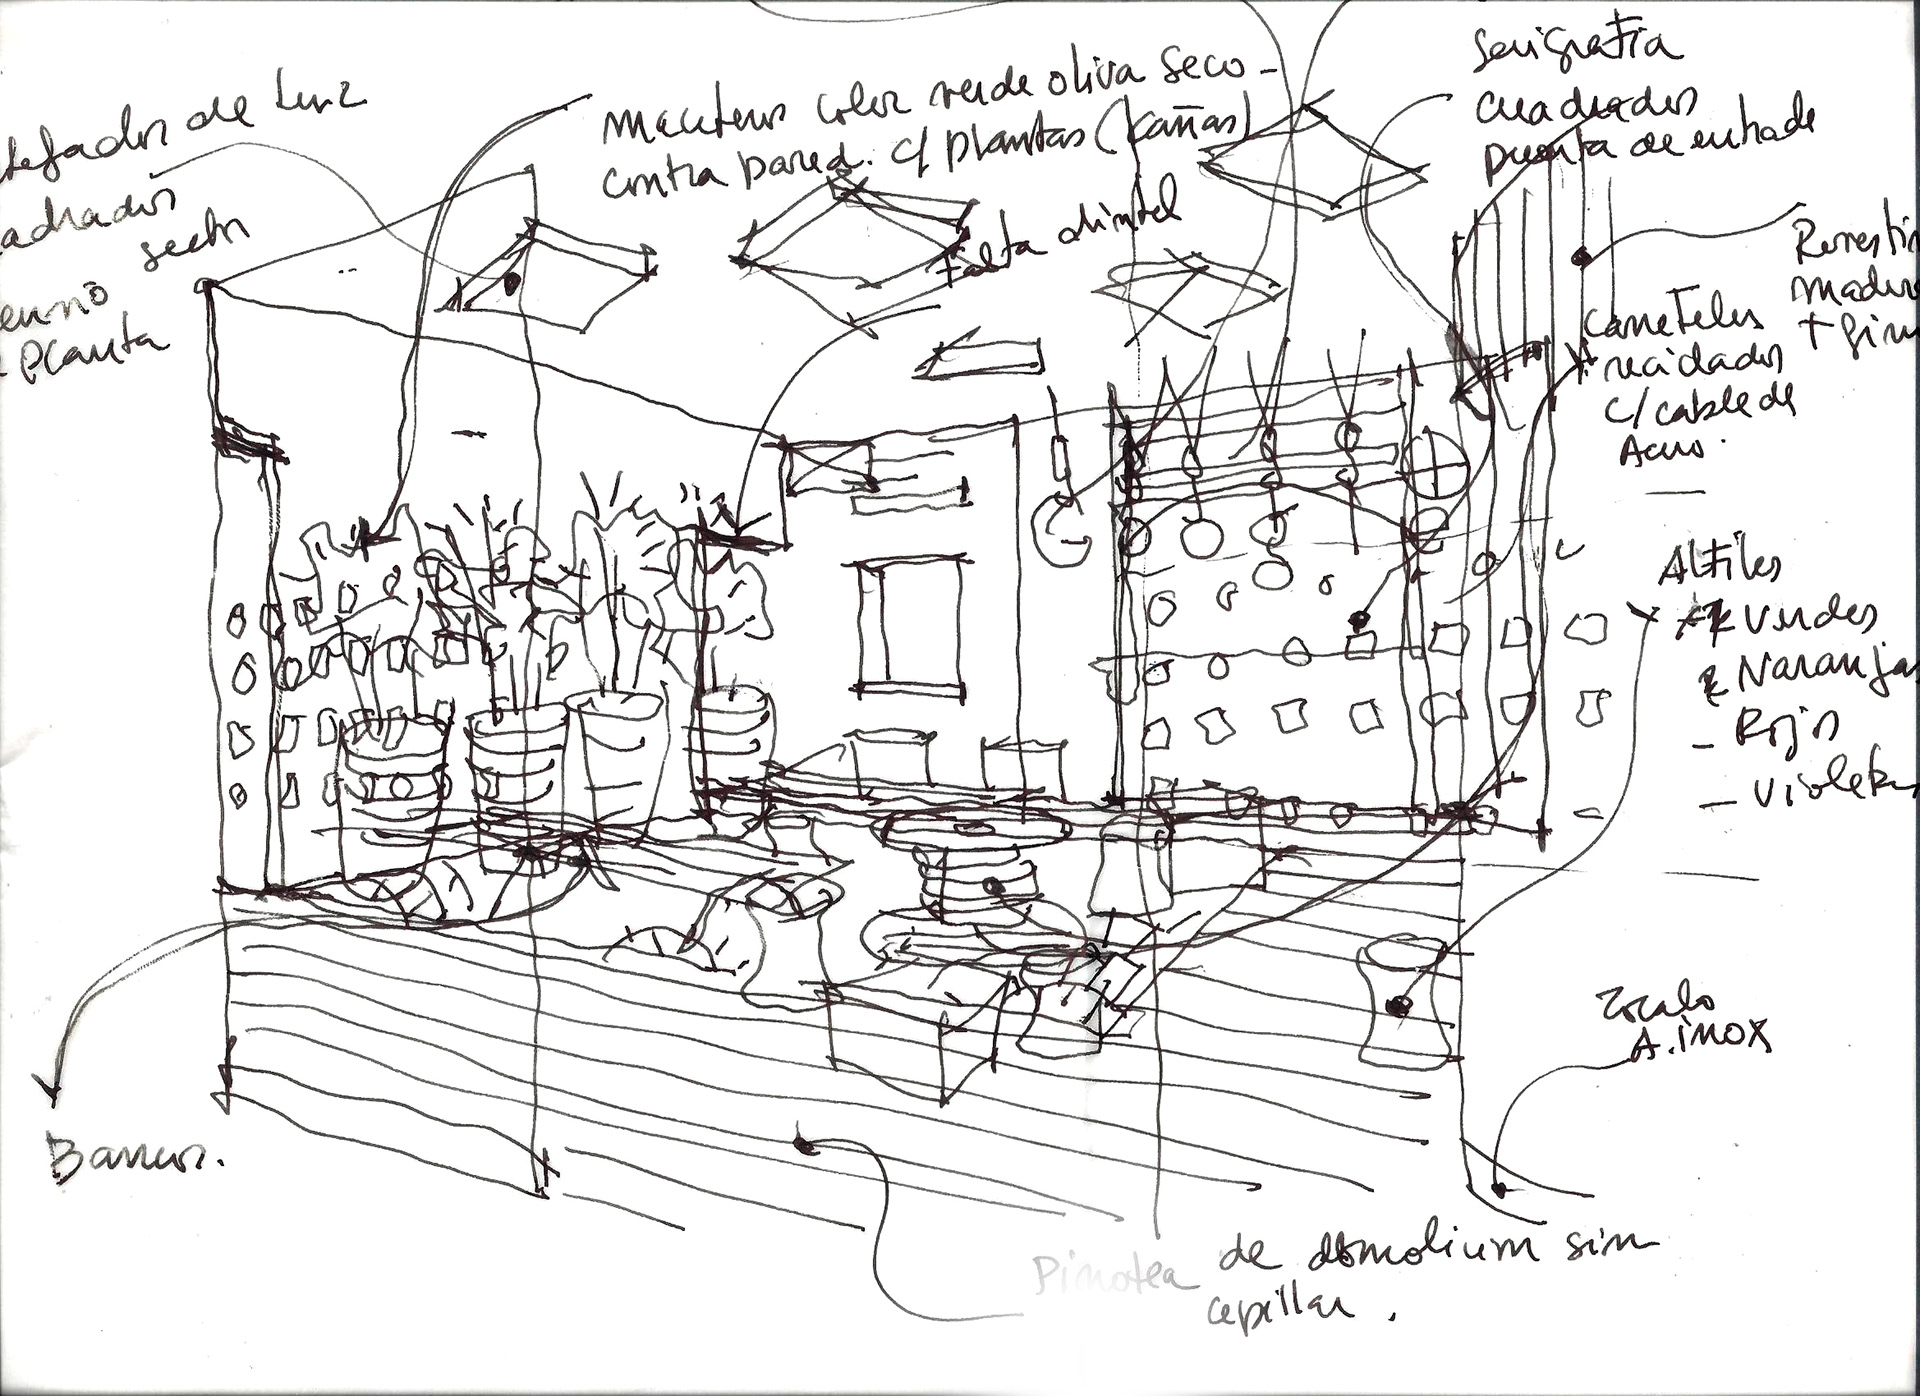 de Luz
sector
Planta
maceteros color verde oliva seco -
contra pared. c/ plantas (Cañas)
Falta dintel
Serigrafia
cuadrados
puerta de entrada
Carreteles
reciclados
c/ cable de
Acero.
Altiles
Verdes
Naranjas
- Rojos
- Violetas
Zocalo
A. inox
Bancos.
Pinotea de demolicion sin
cepillar.